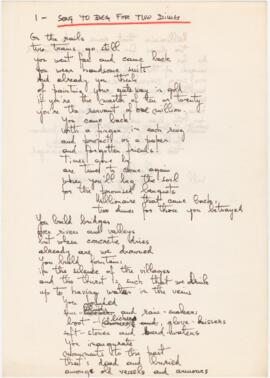 1 - SONG TO BEG FOR TWO DIMES
On the rails
two trains go still
you went far and came back
You wear handsome suits
And already you think
of painting your gateway in gold
if you're the master of ten or twenty
you're the servant of one million
You came back
with a finger in each ring
and property on a paper
and forgotten friends
Times gone by
are bound to come again
when you'll beg the soil
for the promised banquets
Millionaire that came back
two dimes for those you betrayed
You build bridges
over rivers and valleys
but when concrete dries
already are we drowned
You build fountains
in the silence of the villages
and the thirst is such that we drink
up to having water in the veins
You
and rain-makers
boot-, glove-kissers
-stones and
You inaugurate
monuments to the past
that's dead and buried
among old vessels and armours